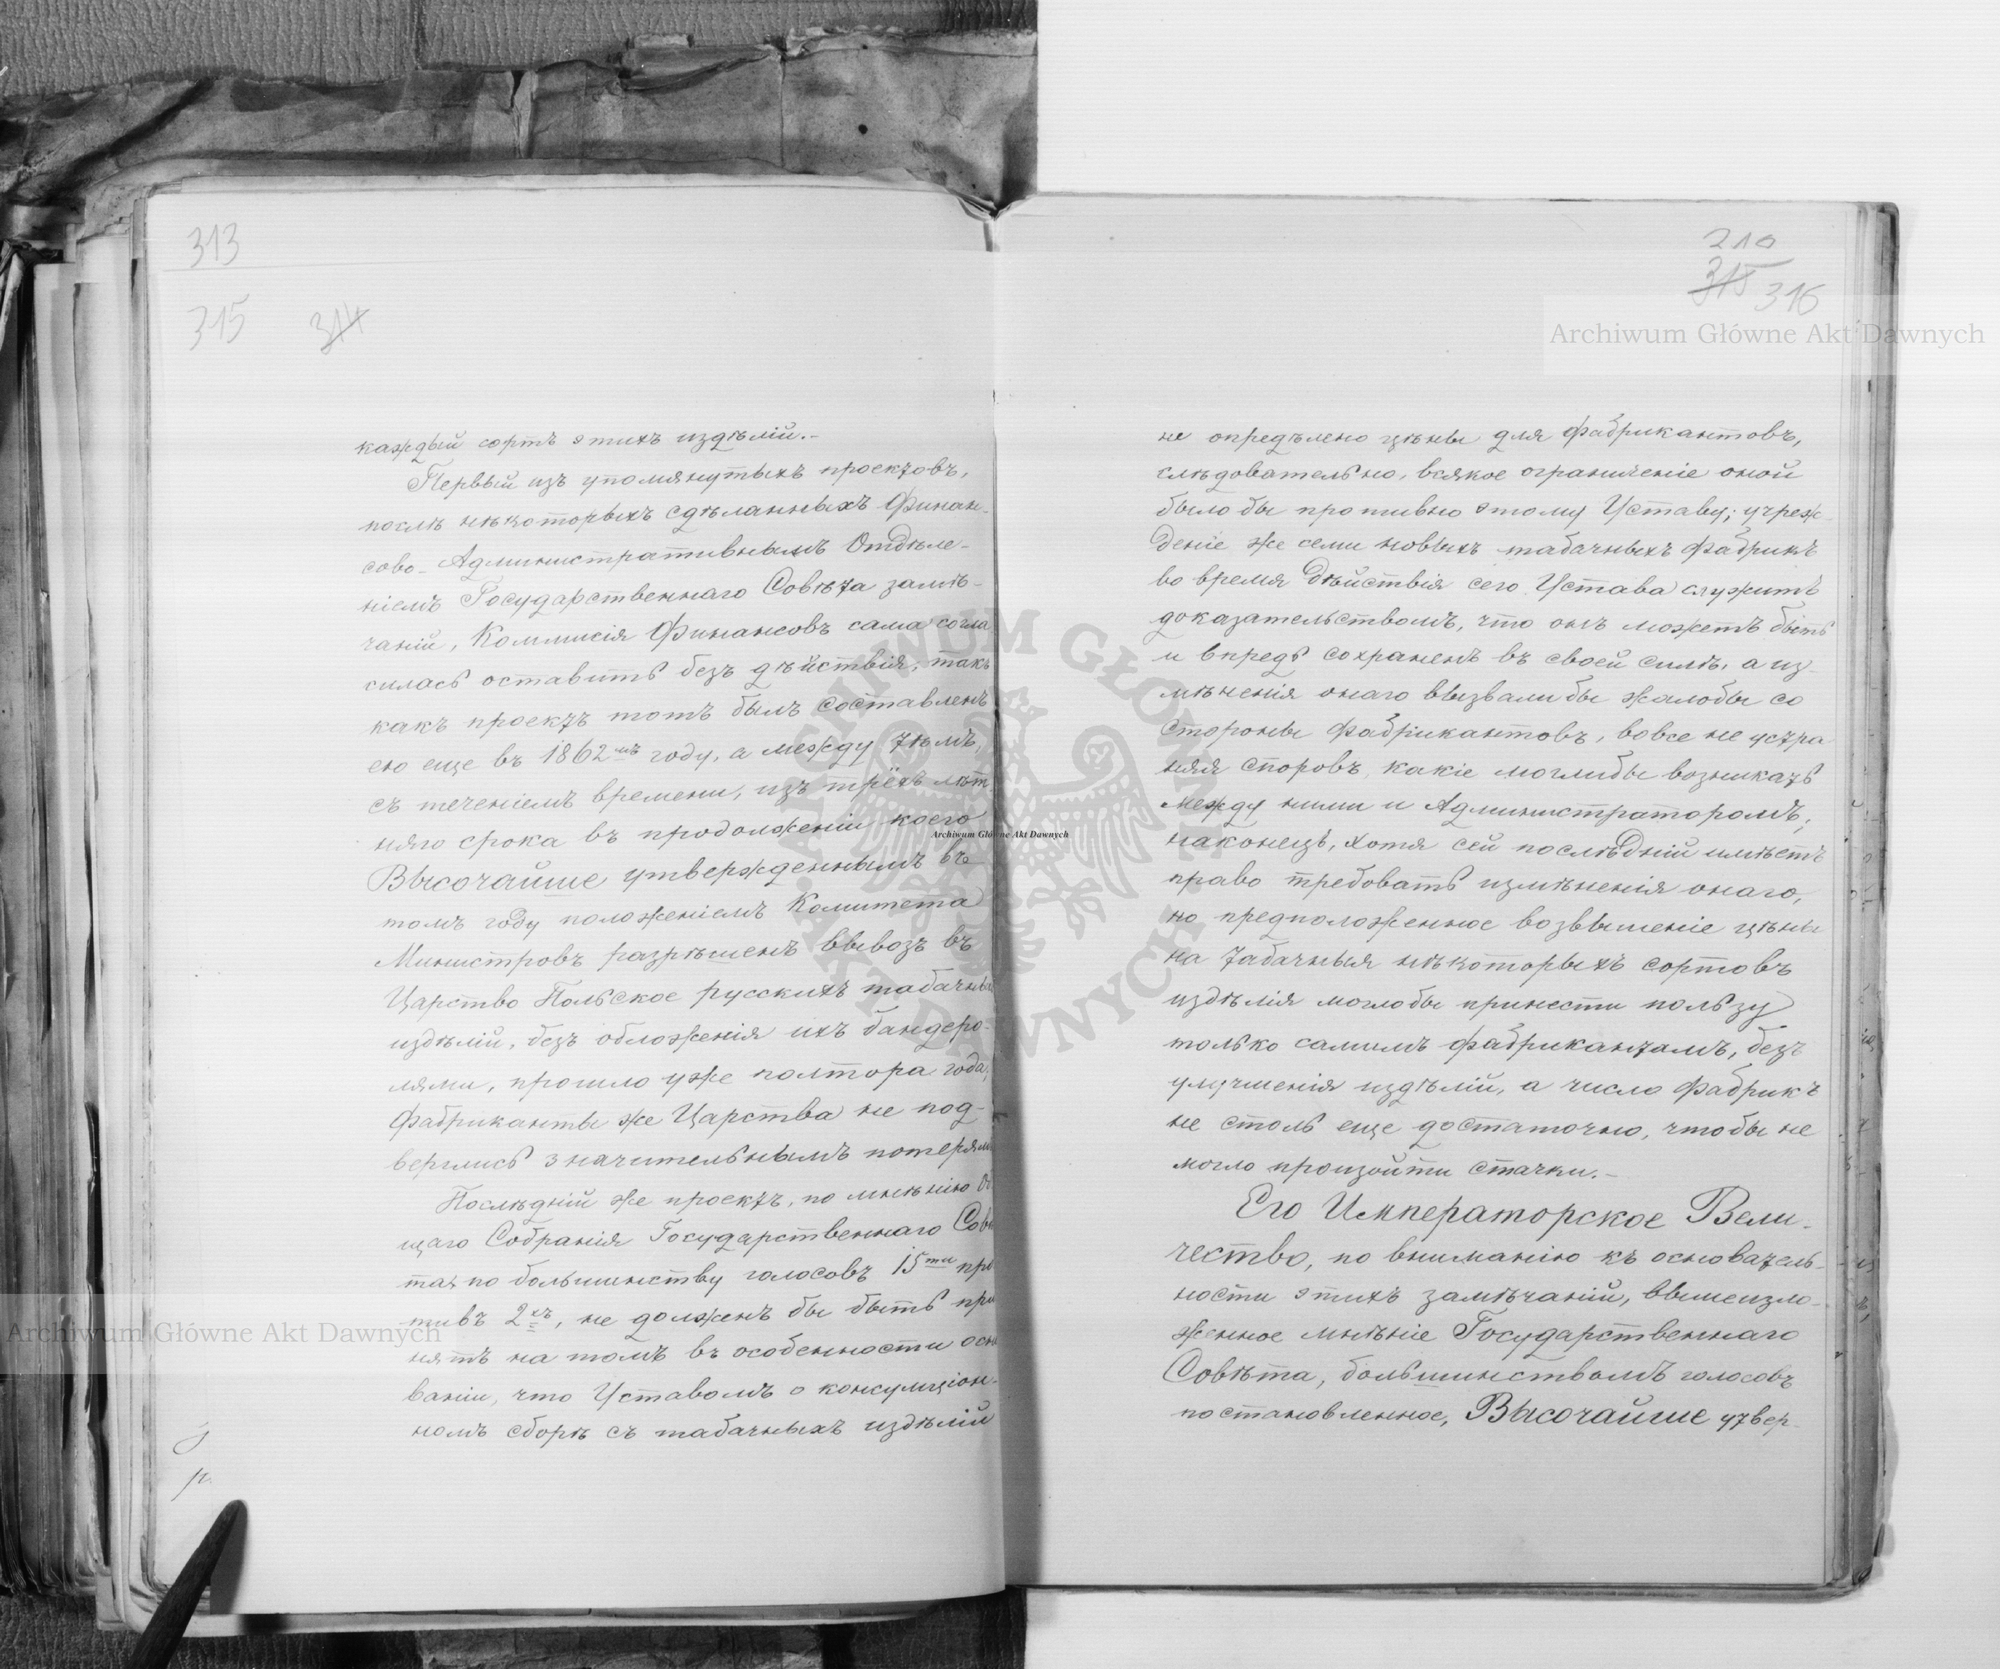 313
315 314
каждый сортъ этихъ издѣлій.–
Первый изъ упомянутыхъ проектовъ,
послѣ нѣкоторыхъ сдѣланныхъ Финан-
сово-Административнымъ Отдѣле-
ніемъ Государственнаго Совѣта замѣ-
чаній, Коммисія Финансовъ сама согла
силась оставить безъ дѣйствія, такъ
какъ проектъ тотъ былъ составленъ
ею еще въ 1862мъ году, а между тѣмъ,
съ теченіемъ времени, изъ трёхъ лѣт
няго срока въ продолженіи коего
Высочайше утвержденнымъ въ
томъ году положеніемъ Комитета
Министровъ разрѣшенъ ввозъ въ
Царство Польское русскихъ табачны
издѣлій, безъ обложенія ихъ бандеро-
лями, прошло уже полтора года,
фабриканты же Царства не под-
верглись значительнымъ потерям
Послѣдній же проектъ, по мнѣнію О
щаго Собранія Государственнаго Совѣ
та, по большинству голосовъ 15ти про
тивъ 2хъ, не долженъ бы быть при
нятъ на томъ въ особенности осн
ваніи, что Уставомъ о консумціон-
номъ сборѣ съ табачныхъ издѣлій
210
315 316
не опредѣлено цѣны для фабрикантовъ,
слѣдовательно, всякое ограниченіе оной
было бы противно этому Уставу; учреж-
деніе же семи новыхъ табачныхъ фабрикъ
во время дѣйствія сего Устава служитъ
доказательствомъ, что онъ можетъ быть
и впредь сохраненъ въ своей силѣ, а из-
мѣненія онаго вызвали бы жалобы со
стороны фабрикантовъ, вовсе не устра
няя споровъ, какіе моглибы возникать
между ними и Администраторомъ;
наконецъ, хотя сей послѣдній имѣетъ
право требовать измѣненія онаго,
но предположенное возвышеніе цѣны
на табачныя нѣкоторыхъ сортовъ
издѣлія моглобы принести пользу
только самимъ фабрикантамъ, безъ
улучшенія издѣлій, а число фабрикъ
не столь еще достаточно, чтобы не
могло произойти стачки.–
Его Императорское Вели-
чество, по вниманію къ основатель-
ности этихъ замѣчаній, вышеизло-
женное мнѣніе Государственнаго
Совѣта, большинствомъ голосовъ
постановленное, Высочайше утвер-
Archiwum Główne Akt Dawnych
Archiwum Główne Akt Dawnych
Archiwum Główne Akt Dawnych
ARCHIWUM GŁÓWNE AKT DAWNYCH